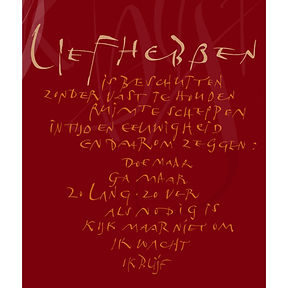 LIEFHEBBEN
IS BESCHUTTEN
ZONDER VAST TE HOUDEN
RUIMTE SCHEPPEN
IN TIJD EN EEUWIGHEID
EN DAAROM ZEGGEN:
DOE MAAR
GA MAAR
ZO LANG · ZO VER
ALS NODIG IS
KIJK MAAR NIET OM
IK WACHT
IK BLIJF